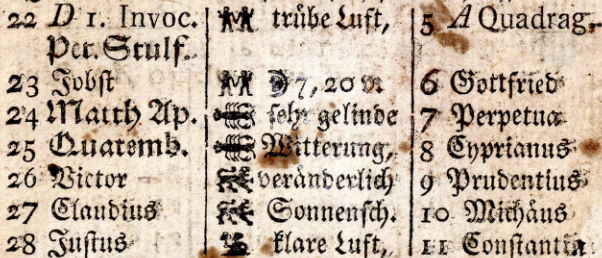 22 D 1. Invoc. trübe Luft, 5 A Quadrag.
Pet. Stulf.
23 Jobst 7, 20 v. 6 Gottfried
24 Matth Ap. sehr gelinde 7 Perpetua
25 Quatemb. Witterung, 8 Cyprianus
26 Victor veränderlich 9 Prudentius
27 Claudius Sonnensch. 10 Michäus
28 Justus klare Luft, 11 Constantin